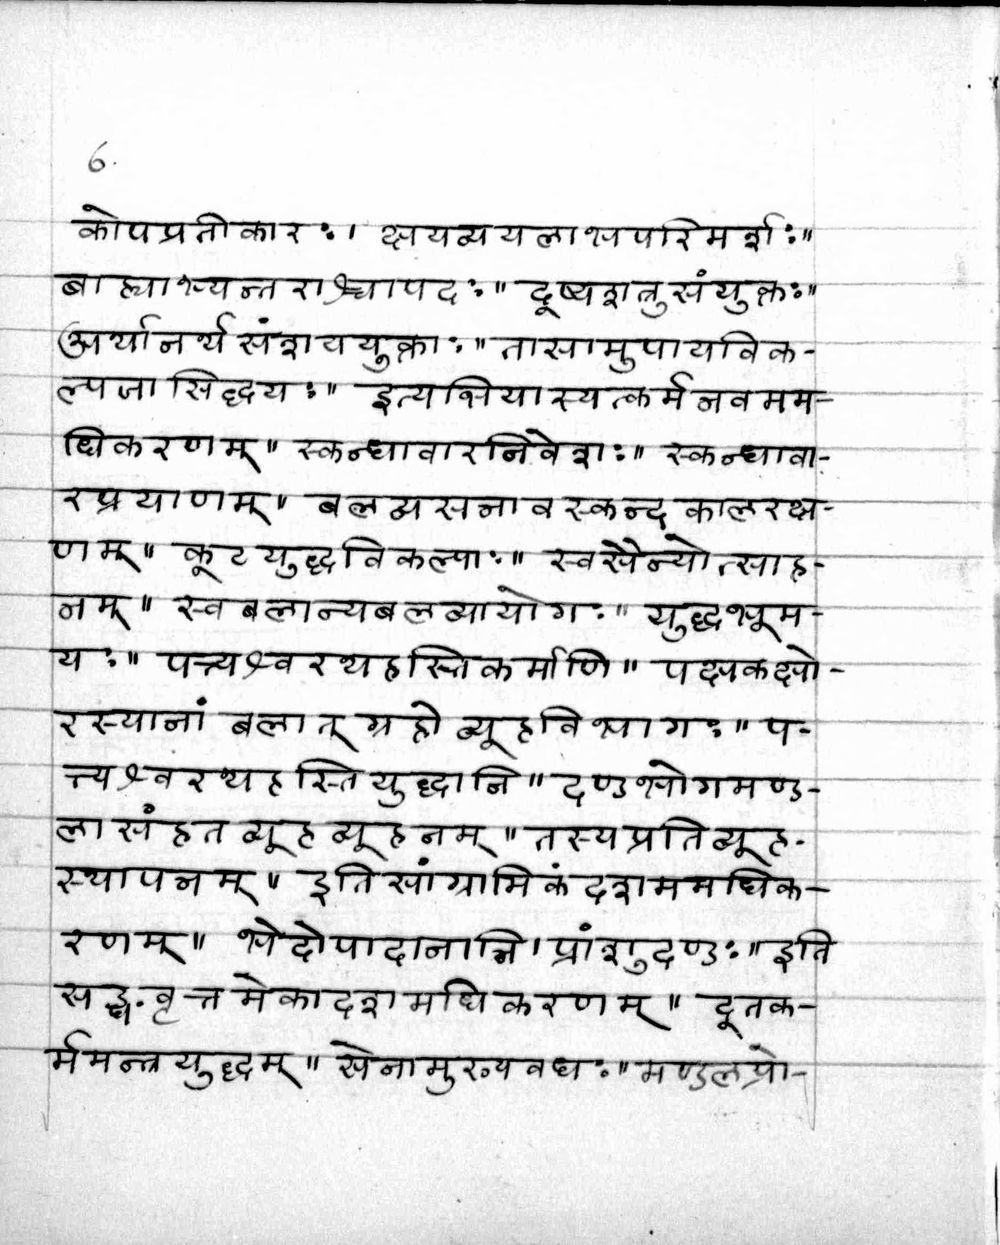 6.
कोपप्रतीकारः। क्षयव्ययलाभपरिमर्शः॥
बाह्याभ्यन्तराश्चापदः॥ दूष्यशत्रुसंयुक्तः॥
अर्थानर्थसंशययुक्ताः॥ तासामुपायविक-
ल्पजा सिद्धयः॥ इत्यभियास्यत्कर्म नवमम-
धिकरणम्॥ स्कन्धावारनिवेशः॥ स्कन्धावा-
रप्रयाणम्॥ बलव्यसनावस्कन्दकालरक्ष-
णम्॥ कूटयुद्धविकल्पाः॥ स्वसैन्योत्साह-
नम्॥ स्वबलान्यबलव्यायोगः॥ युद्धभूम-
यः॥ पत्त्यश्वरथहस्तिकर्माणि॥ पक्षकक्षो-
रस्यानां बलात् ग्रहो व्यूहविभागः॥ प-
त्त्यश्वरथहस्तियुद्धानि॥ दण्डभोगमण्ड-
लासंहतव्यूहव्यूहनम्॥ तस्यप्रतिव्यूह-
स्थापनम्॥ इति सांग्रामिकं दशममधिक-
रणम्॥ भेदोपादानानि। प्रांशुदण्डः॥ इति
सङ्घवृत्तमेकादशमधिकरणम्॥ दूतक-
र्ममन्त्रयुद्धम्॥ सेनामुख्यवधः॥ मण्डलप्रो-